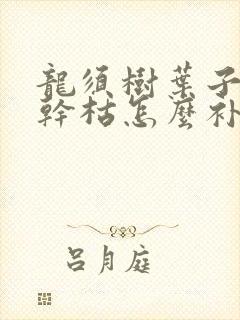 龍须樹葉子
幹枯怎麼补
吕月庭